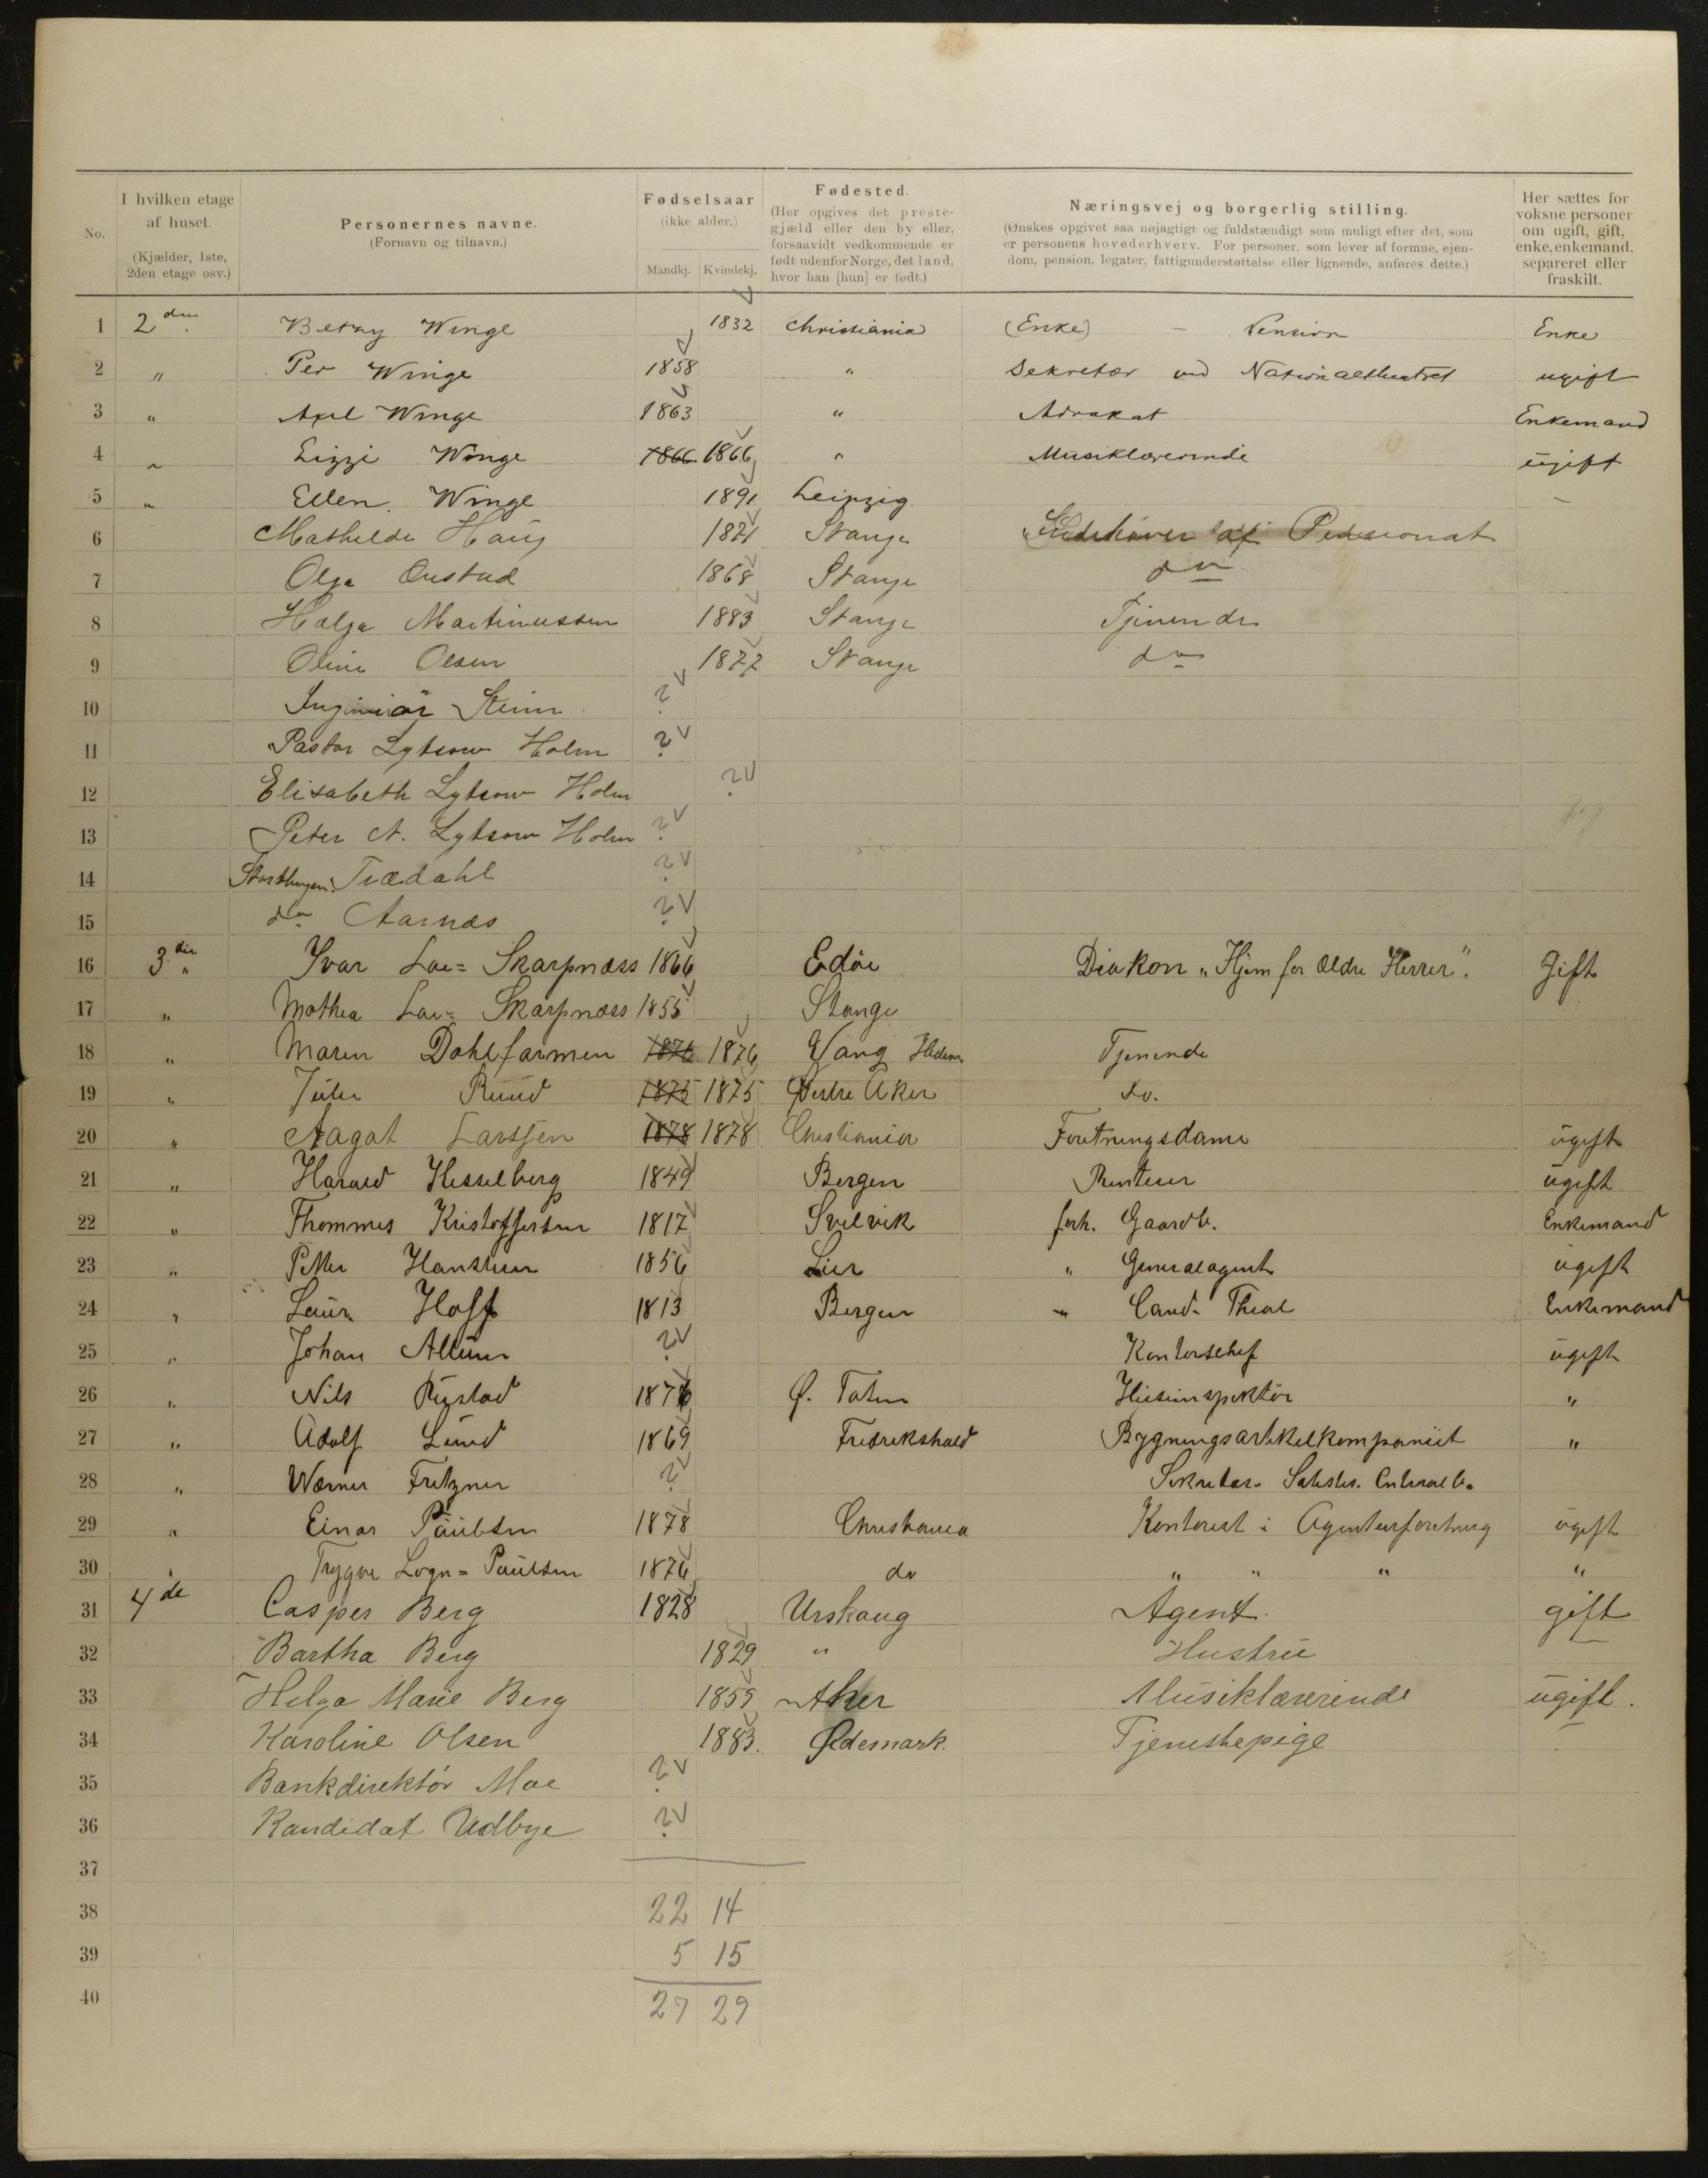 No.
I hvilken etage af huset. (Kjælder, 1ste, 2den etage osv.)
Personernes navne. (Fornavn og tilnavn.)
Fødselsaar (ikke alder.) Mandkj. Kvindekj.
Fødested. (Her opgives det prestegjæld eller den by eller, forsaavidt vedkommende er født udenfor Norge, det land, hvor han [hun] er født.)
Næringsvej og borgerlig stilling. (Ønskes opgivet saa nøjagtigt og fuldstændigt som muligt efter det, som er personens hovederhverv. For personer, som lever af formue, ejendom, pension, legater, fattigunderstøttelse eller lignende, anføres dette.)
Her sættes for voksne personer om ugift, gift, enke, enkemand, separeret eller fraskilt.
1 2den Betzy Winge 1832 Christiania (Enke) - Pension Enke
2 " Per Winge 1858 " Sekretær ved Nationaltheatret ugift
3 " Axel Winge 1863 " Advokat Enkemand
4 " Lizzi Winge 1866 1866 " Musiklærerinde ugift
5 " Ellen Winge 1891 Leipzig -
6 Mathilde Haug 1821 Stange Indehaver af Pensionat
7 Olga Onstad 1868 Stange do
8 Helga Martinussen 1883 Stange Tjenende
9 Oline Olsen 1877 Stange do
10 Ingeniør Stenn ?
11 Pastor Lytzow Holm ?
12 Elisabeth Lytzow Holm ?
13 Peter A. Lytzow Holm ?
14 Storthingsm. Trædahl ?
15 do Aarnæs ?
16 3die " Ivar Lae= Skarpnæss 1866 Edøe Diakon "Hjem for ældre Herrer". Gift
17 " Mathea Lae= Skarpnæss 1855 Stange
18 " Maren Dahlfarmen 1876 1876 Vang Hedem. Tjenende
19 " Julie Ruud 1875 1875 Vestre Aker do.
20 " Aagot Larssen 1878 1878 Christiania Foretningsdame ugift
21 " Harald Hesselberg 1849 Bergen Rentier ugift
22 " Thommes Kristoffersen 1817 Svelvik forh. Gaardb. Enkemand
23 " Petter Hanssteen 1856 Lier " Generalagent ugift
24 " Laur. Hoff 1813 Bergen " Cand. Theol Enkemand
25 " Johan Allum ? Kontorschef ugift
26 " Nils Rystad 1876 Ø. Toten Husinspektør "
27 " Adolf Lund 1869 Fredrikshald Bygningsartikelkompaniet "
28 " Werner Fritzner ? Sekretær. Statist. Centralb.
29 " Einar Paulsen 1878 Christiania Kontorist i Agenturforetning ugift
30 " Trygve Logn= Paulsen 1876 do " " " "
31 4de Casper Berg 1828 Urskaug Agent. gift
32 Bartha Berg 1829 " Hustru -
33 Helga Marie Berg 1859 Aker Musiklærerinde ugift.
34 Karoline Olsen 1883. Ødemark. Tjenestepige -
35 Bankdirektör Moe ?
36 Kandidat Udbye ?
37
38 22 14
39 5 15
40 27 29